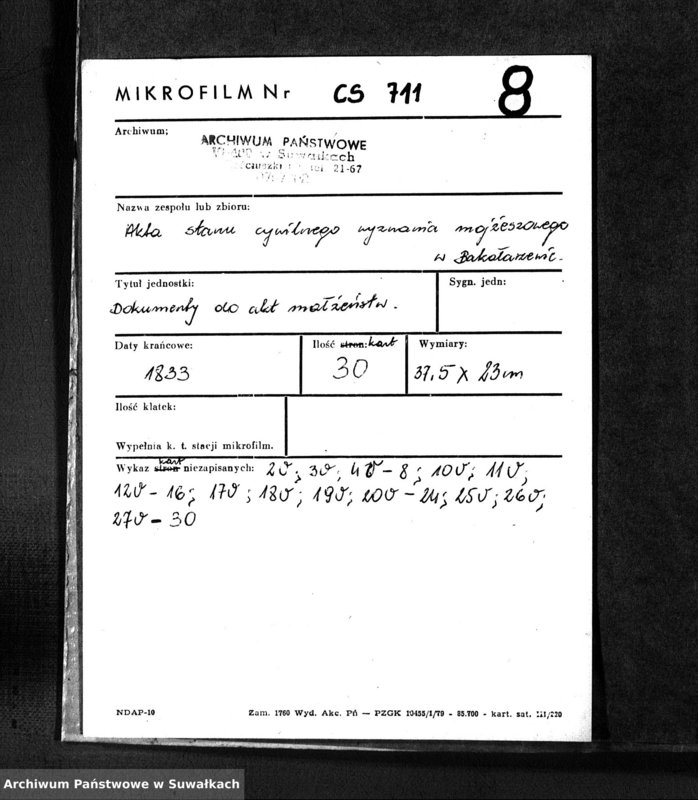 MIKROFILM Nr CS 711 8
Archiwum;
ARCHIWUM PAŃSTWOWE
w Suwałkach
21-67
Nazwa zespołu lub zbioru:
Akta stanu cywilnego wyznania mojżeszowego
w Bakałarzewie.
Tytuł jednostki:
Sygn. jedn:
Dokumenty do akt małżeństw.
Daty krańcowe:
1833
Ilość stron: kart
30
Wymiary:
37,5 X 23 cm
Ilość klatek:
Wypełnia k. t. stacji mikrofilm.
Wykaz stron kart niezapisanych: 2v; 3v; 4v - 8; 10v; 11v;
12v - 16; 17v; 18v; 19v; 20v - 24; 25v; 26v;
27v - 30
NDAP-10
Zam. 1760 Wyd. Akc. Pń — PZGK 10455/1/79 - 85.700 - kart. sat. III/220
Archiwum Państwowe w Suwałkach